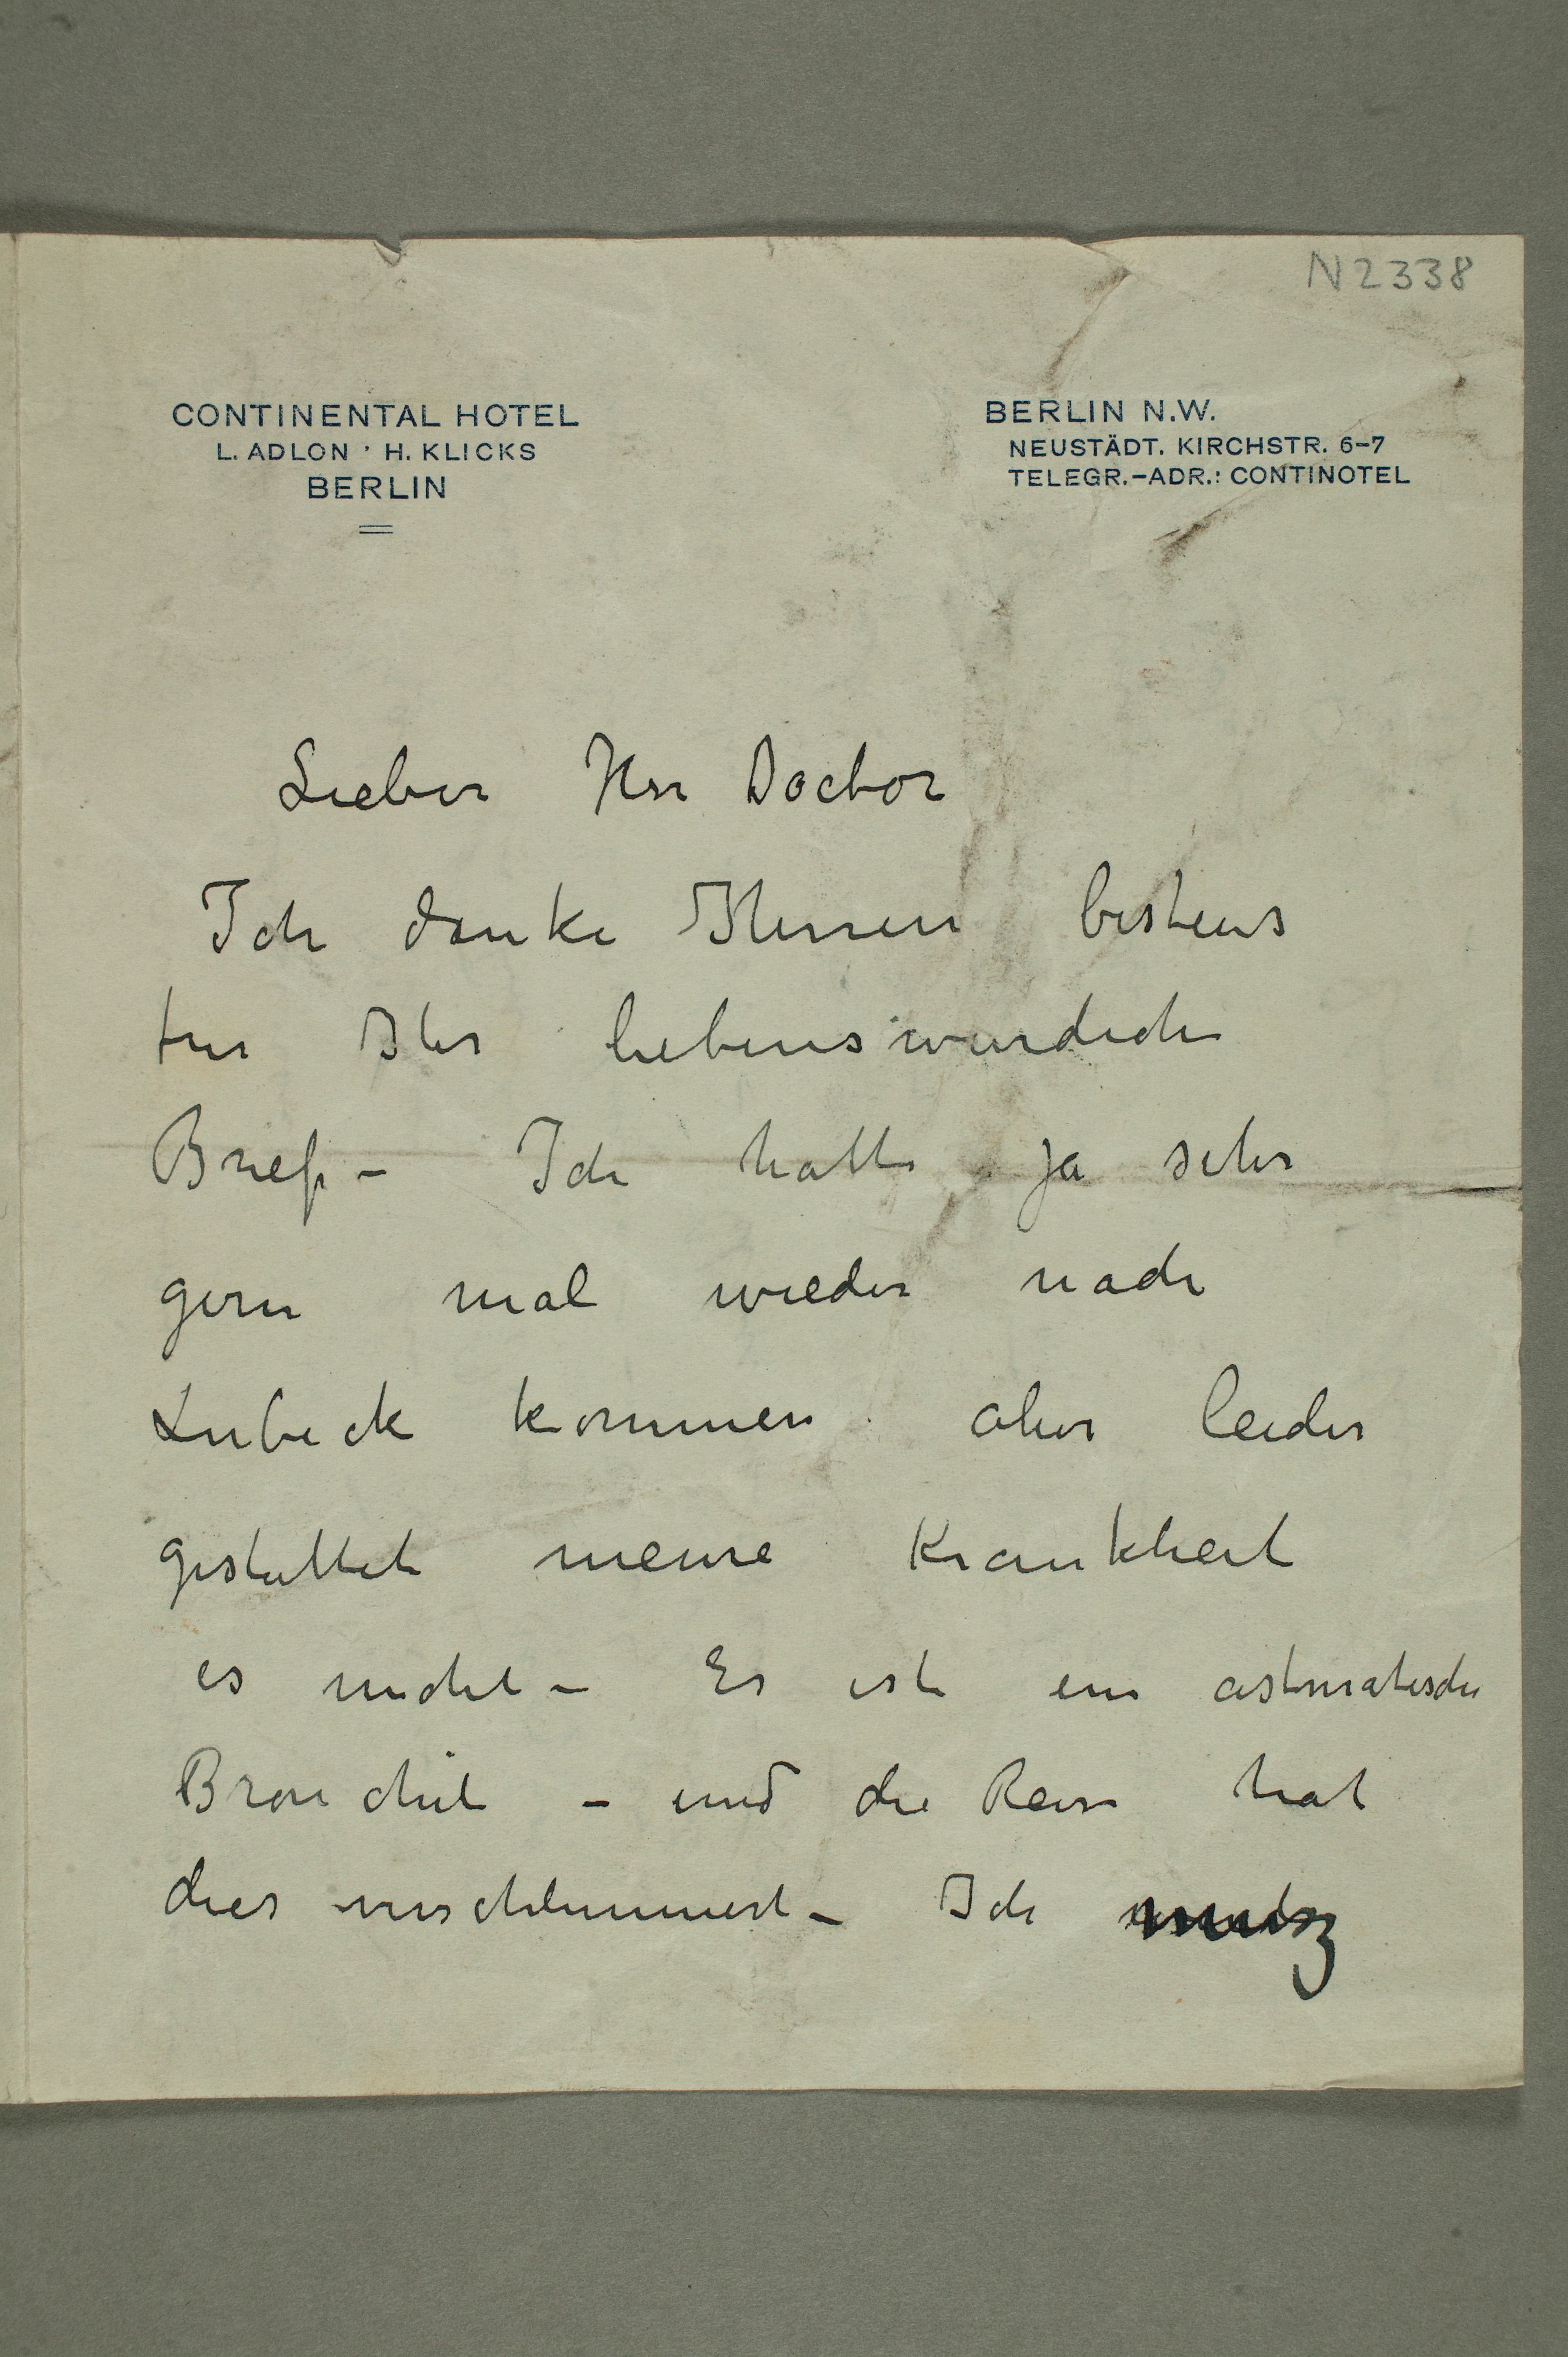 N 2338
CONTINENTAL HOTEL
L. ADLON · H. KLICKS
BERLIN
BERLIN N.W.
NEUSTÄDT. KIRCHSTR. 6–7
TELEGR.–ADR.: CONTINOTEL
Lieber Herr Doctor
Ich danke Ihnen bestens
fur Ihr liebenswurdich
Brief – Ich hatte ja sehr
gern mal wieder nach
Lubeck kommen aber leider
gestattet meine Krankheit
es nicht – Es ist ein astmatische
Bronchit – und die Reise hat
dies verschlimmert – Ich musz